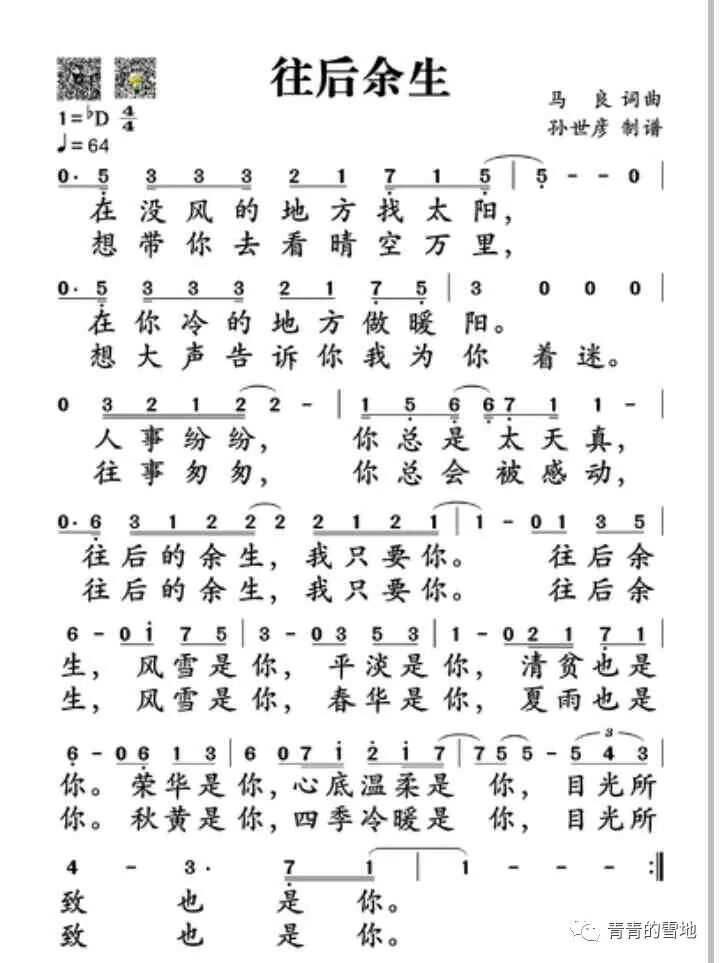 往后余生
1=♭D 4/4
♩=64
马 良 词曲
孙世彦 制谱
0· 5 3 3 3 2 1 7 1 5 | 5 - - 0 |
在没风的地方找太阳，
想带你去看晴空万里，
0· 5 3 3 3 2 1 7 5 | 3 0 0 0 |
在你冷的地方做暖阳。
想大声告诉你我为你着迷。
0 3 2 1 2 2 - | 1 5 6 6 7 1 1 - |
人事纷纷， 你总是太天真，
往事匆匆， 你总会被感动，
0· 6 3 1 2 2 2 2 1 2 1 | 1 - 0 1 3 5 |
往后的余生，我只要你。 往后余
往后的余生，我只要你。 往后余
6 - 0 i 7 5 | 3 - 0 3 5 3 | 1 - 0 2 1 7 1 |
生， 风雪是你， 平淡是你， 清贫也是
生， 风雪是你， 春华是你， 夏雨也是
6 - 0 6 1 3 | 5 - 6 0 7 i 2 i 7 | 7 5 5 - 5 4 3 |
你。荣华是你，心底温柔是 你，目光所
你。秋黄是你，四季冷暖是 你，目光所
4 - 3· 7 1 | 1 - - - :‖
致 也 是 你。
致 也 是 你。
青青的雪地